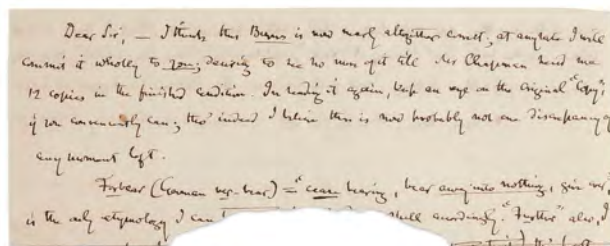 Dear Sir, — I think this Burns is now nearly altogether correct; at any rate I will
commit it wholly to you; desiring to see no more of it till Mr Chapman send me
12 copies in the finished condition. In reading it again, keep an eye on the original "Copy",
if you conveniently can; tho' indeed I believe there is now probably not one discrepancy of
any moment left.
Forbear (German ver-bear) = "cease bearing, bear away into nothing, give over"
is the only etymology I can shall accordingly. "Further" also, I